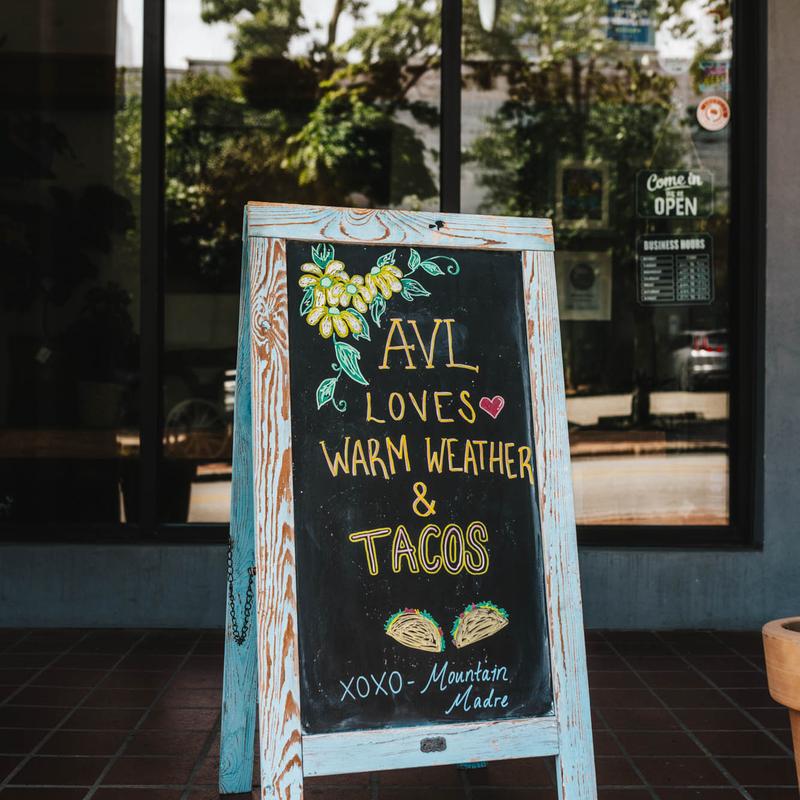 Come in
WE'RE
OPEN
BUSINESS HOURS
AVL
LOVES
WARM WEATHER
&
TACOS
XOXO - Mountain
Madre